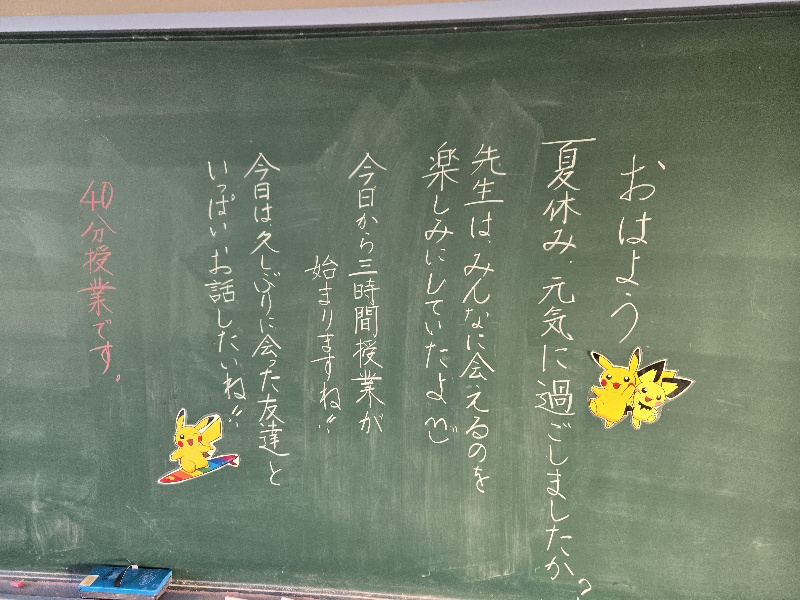 おはよう
夏休み、元気に過ごしましたか?
先生は、みんなに会えるのを
楽しみにしていたよ
今日から三時間授業が
始まりますね!!
今日は久しぶりに会った友達と
いっぱいお話したいね!!
40分授業です。